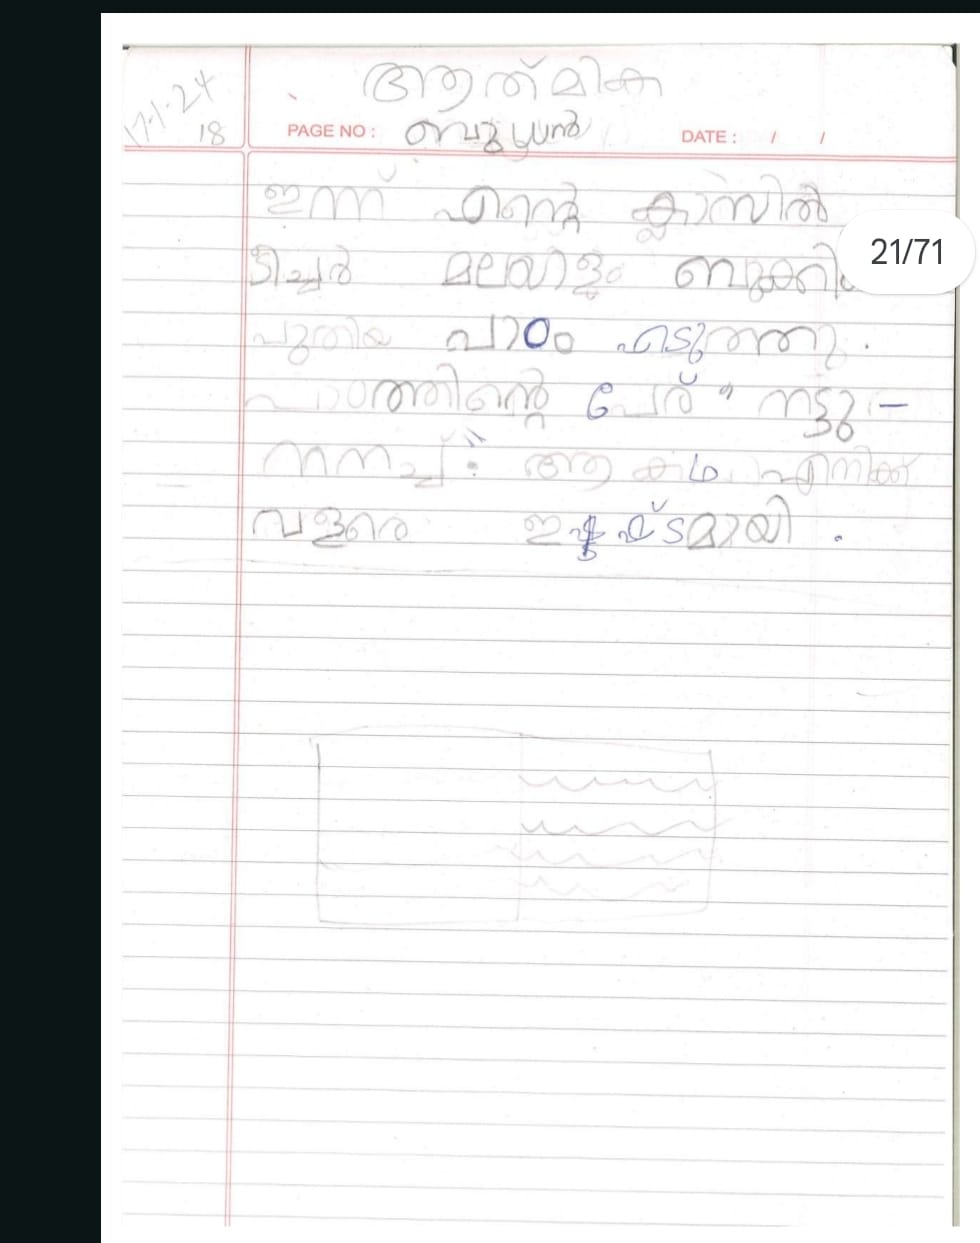 17-1-24
ആത്മിക
18 PAGE NO : ബുധൻ DATE : / /
ഇന്ന് എന്റെ ക്ലാസിൽ
ടീച്ചർ മലയാളം ബുക്കിൽ
21/71
പുതിയ പാഠം എടുത്തു.
പാഠത്തിന്റെ പേര് " നട്ടു -
നനച്ച് ". ആ കഥ എനിക്ക്
വളരെ ഇഷ്ടമായി .